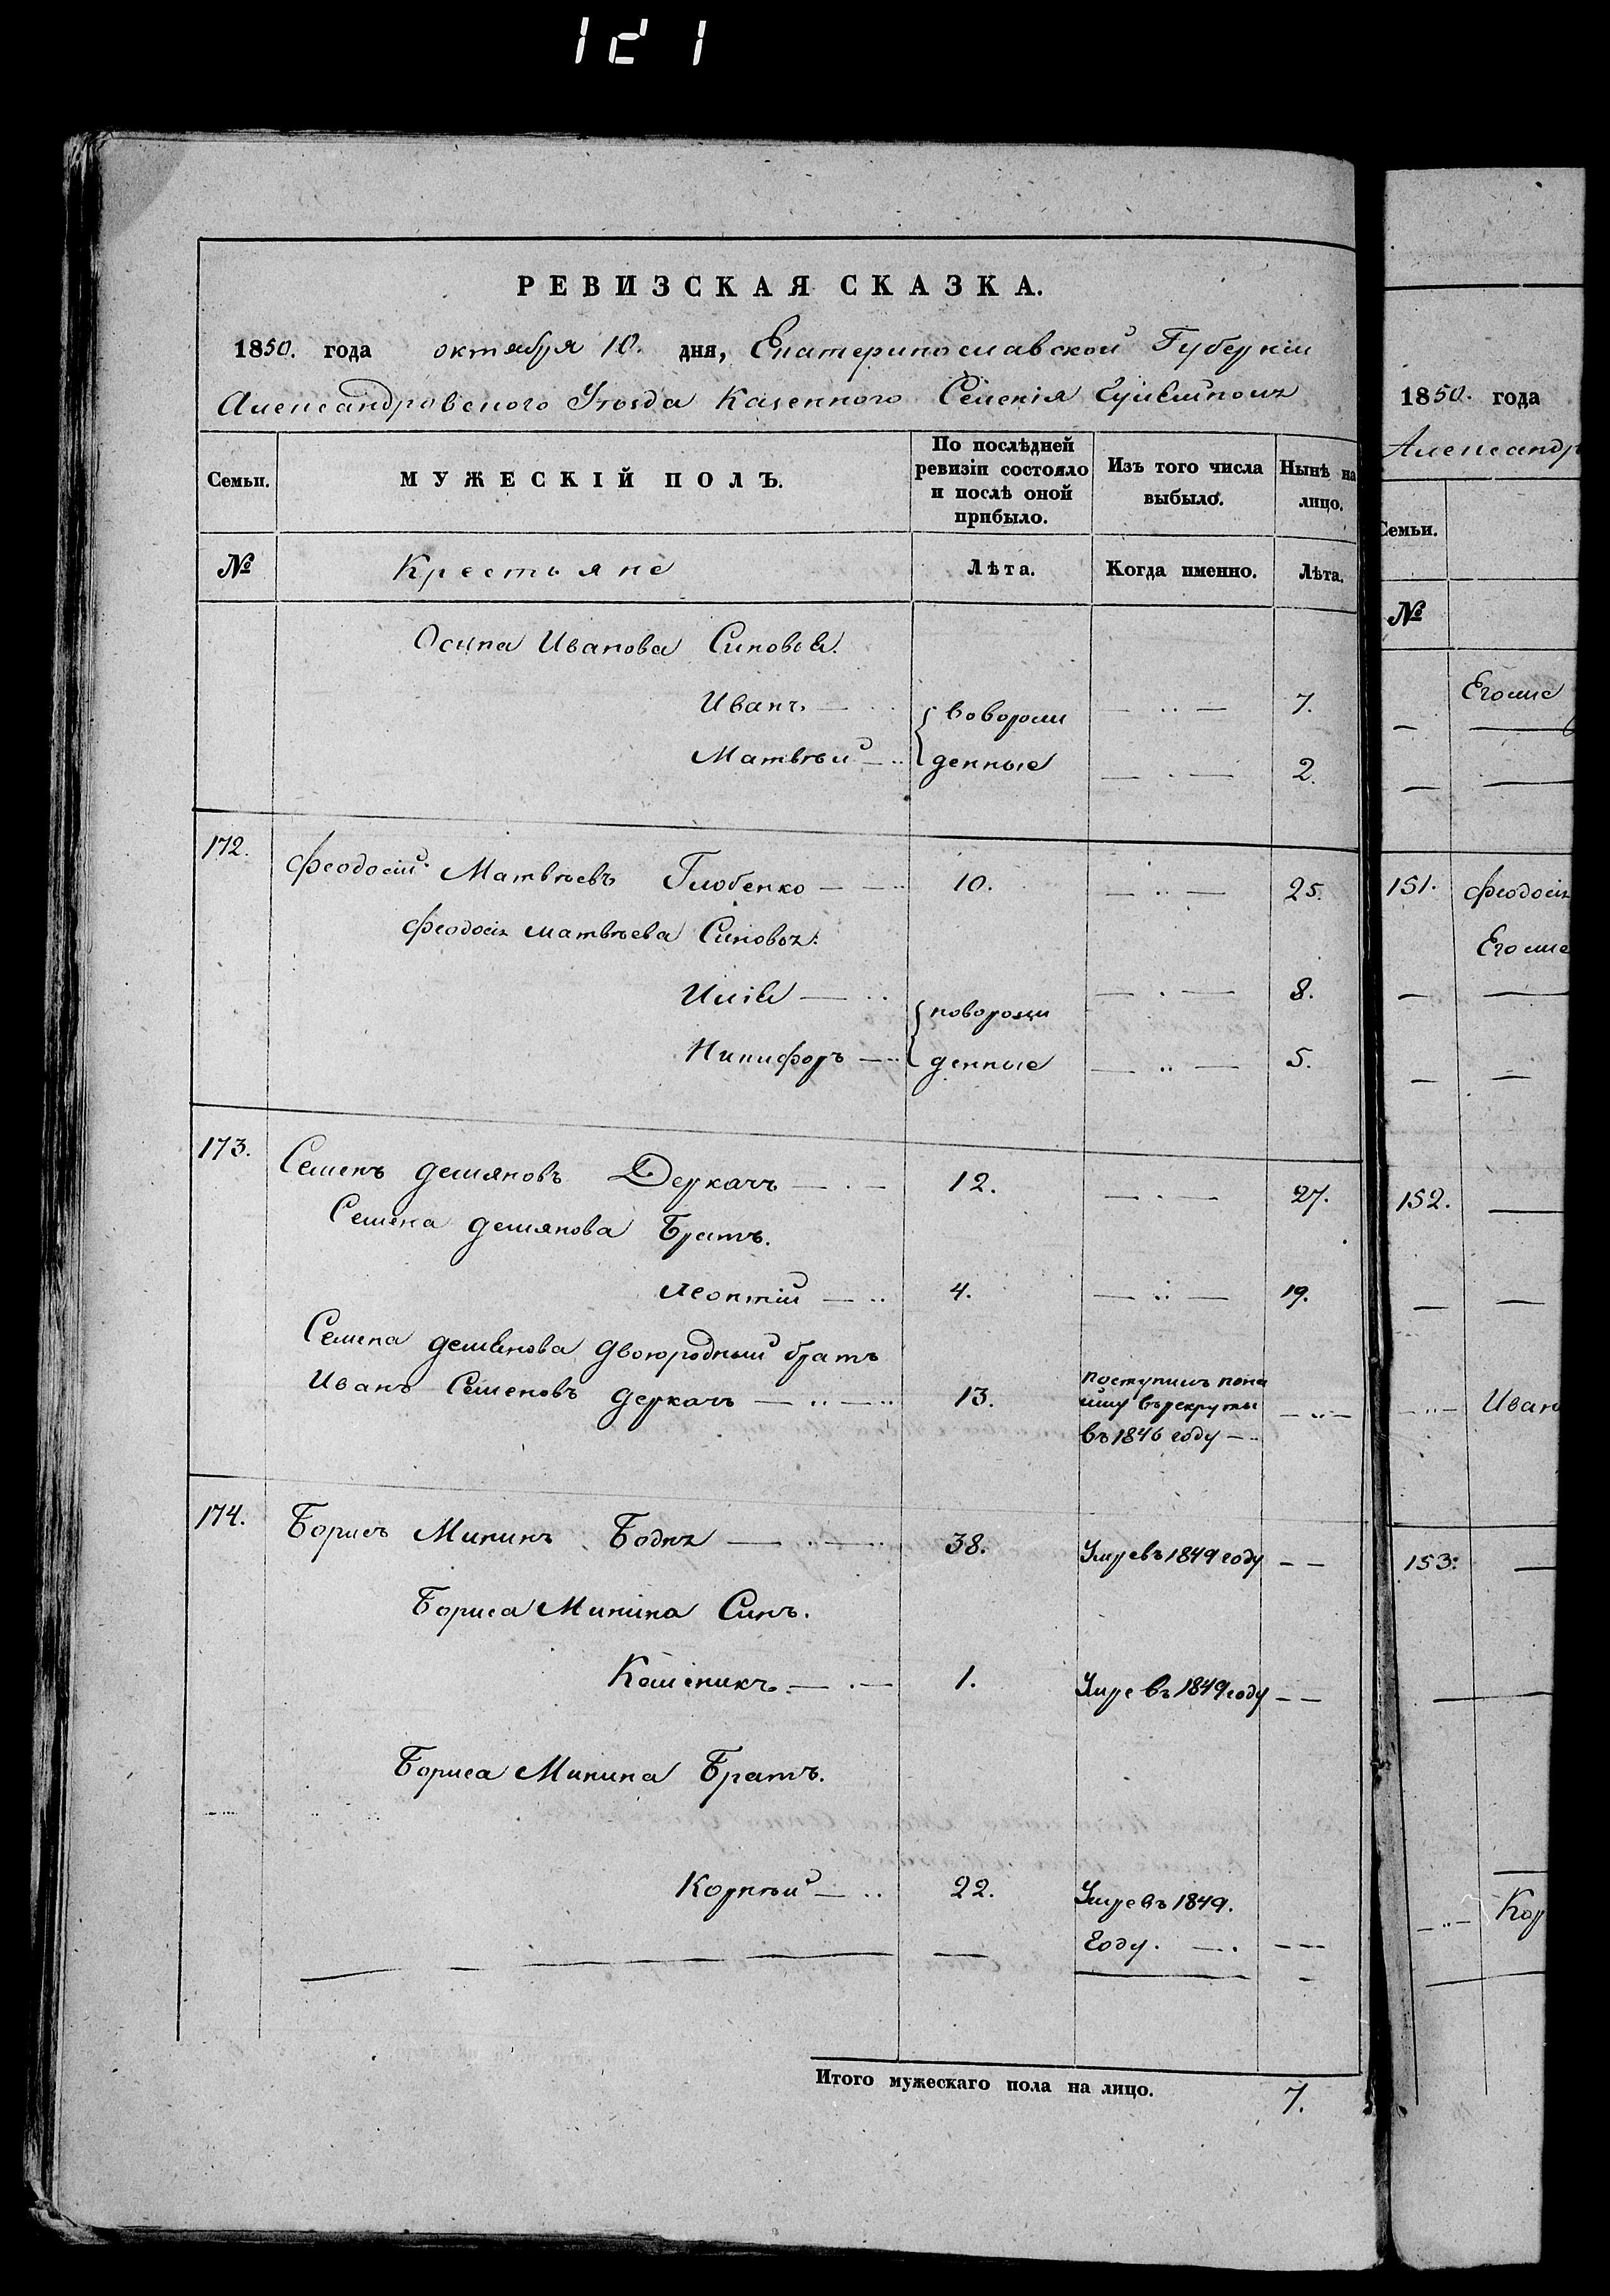 121
РЕВИЗСКАЯ СКАЗКА.
1850. года октября 10. дня, Екатеринославской Губерніи
Александровского Уезда Казенного Селенія
Семьи.
МУЖЕСКІЙ ПОЛЪ.
По послѣдней
ревизіи состояло
и послѣ оной
прибыло.
Изъ того числа
выбыло.
Нынѣ на
лицо.
№
Крестьяне
Лѣта.
Когда именно.
Лѣта.
Осипа Иванова Синовья.
Иванъ.
новорож
7.
Матвѣй
денные
2.
172.
Феодосій Матвѣевъ Глобенко
10.
25.
Феодосія Матвѣева Синовья:
Илія
новорож
8.
Никифоръ
денные
5.
173.
Семенъ демяновъ Деркачъ
12.
27.
Семена демянова Братъ.
Леонтій
4.
19.
Семена демянова двоюродный братъ
Иванъ Семеновъ деркачъ
13.
поступилъ пона
йму въ рекруты
въ 1846 году
174.
Борисъ Мининъ Бодня
38.
Умре въ 1849 году
Бориса Минина Синъ.
1.
Умре въ 1849 году
Бориса Минина Братъ.
Корнѣй
22.
Умре въ 1849.
Году.
Итого мужескаго пола на лицо.
7.
1850. года
Александр
Семьи.
№
Егоже
151.
Феодосія
Егоже
152.
Иван
153:
Кор